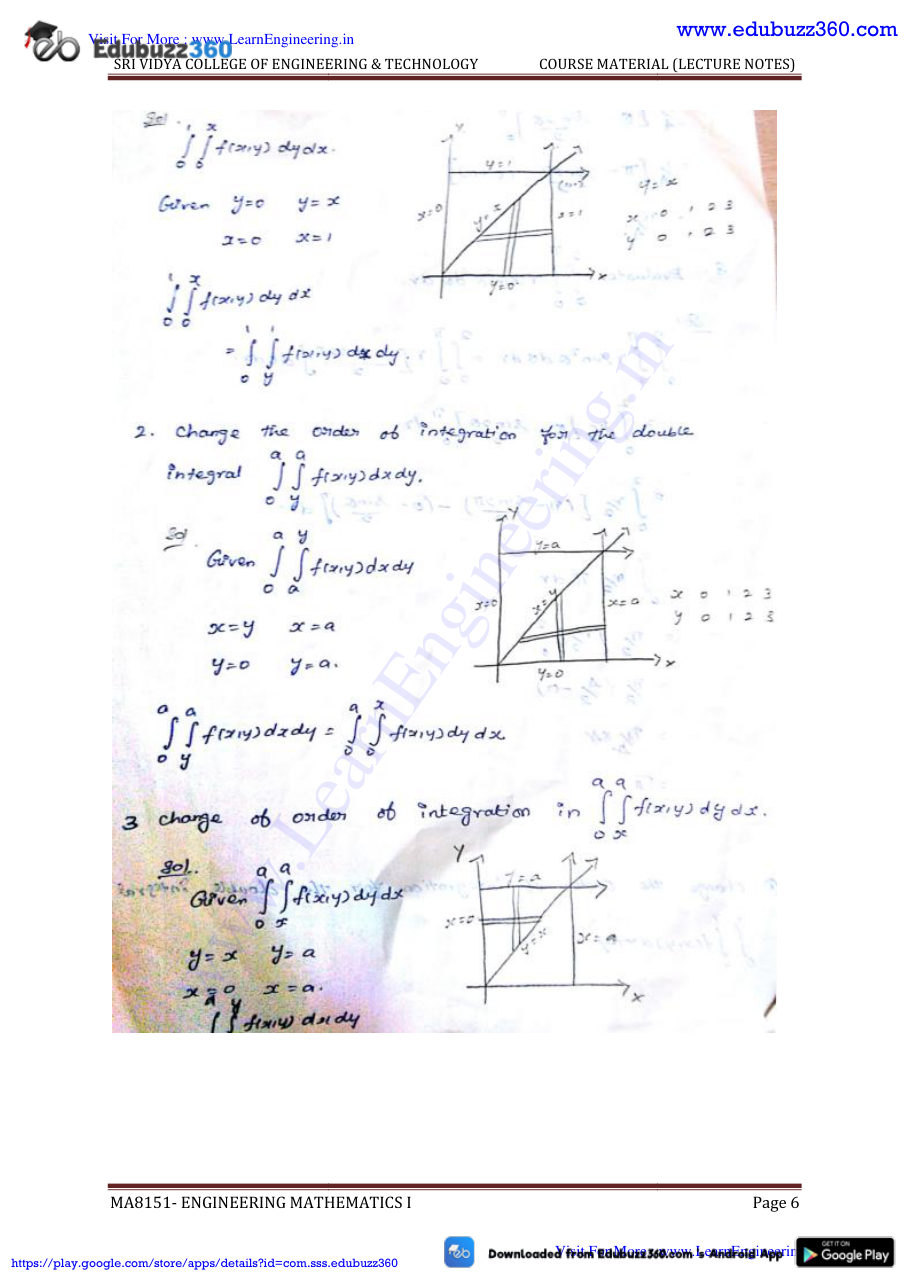 www.edubuzz360.com
Visit For More : www.LearnEngineering.in
Edubuzz360
SRI VIDYA COLLEGE OF ENGINEERING & TECHNOLOGY COURSE MATERIAL (LECTURE NOTES)
Sol.
∫₀¹ ∫₀ˣ f(x,y) dy dx.
Given y=0 y=x
x=0 x=1
∫₀¹ ∫₀ˣ f(x,y) dy dx
= ∫₀¹ ∫ᵧ¹ f(x,y) dx dy.
Y
y=1
x=0
y=x
x=1
y=0
x
y=x
x 0 1 2 3
y 0 1 2 3
2. Change the order of integration for the double
integral ∫₀ᵃ ∫ᵧᵃ f(x,y) dx dy.
Sol
Given ∫₀ᵃ ∫ₐʸ f(x,y) dx dy
x=y x=a
y=0 y=a.
Y
y=a
x=0
x=y
x=a
y=0
x
x 0 1 2 3
y 0 1 2 3
∫₀ᵃ ∫ᵧᵃ f(x,y) dx dy = ∫₀ᵃ ∫₀ˣ f(x,y) dy dx.
3 change of order of integration in ∫₀ᵃ ∫ₓᵃ f(x,y) dy dx.
Sol..
Given ∫₀ᵃ ∫ₓᵃ f(x,y) dy dx
y=x y=a
x=0 x=a.
∫ᵃ ∫ʸ f(x,y) dx dy
Y
y=a
x=0
y=x
x=a
x
www.LearnEngineering.in
MA8151- ENGINEERING MATHEMATICS I Page 6
Downloaded from Edubuzz360.com 's Android App
GET IT ON
Google Play
https://play.google.com/store/apps/details?id=com.sss.edubuzz360